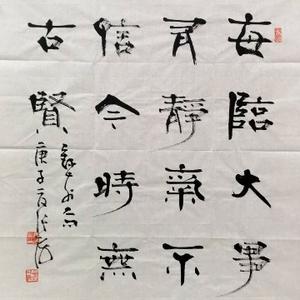 每臨大事
有靜氣不
信今時無
古賢
庚子